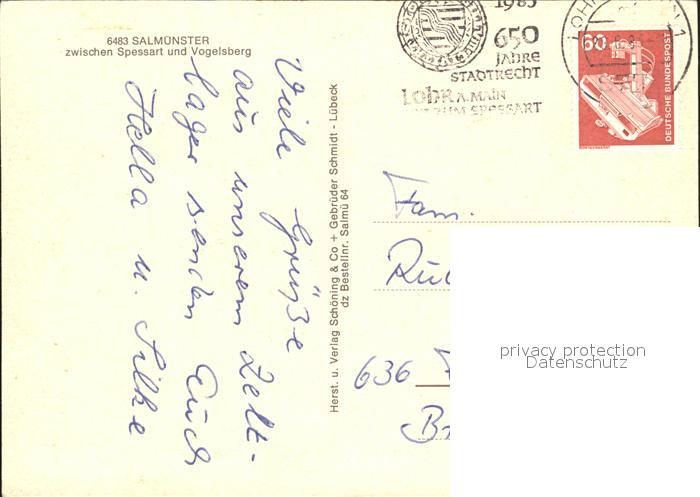 6483 SALMÜNSTER
zwischen Spessart und Vogelsberg
Viele Grüße
aus unserem Zelt-
lager senden Euch
Hella u. Silke
Herst. u. Verlag Schöning & Co + Gebrüder Schmidt - Lübeck
dz Bestellnr. Salmü 64
1983
650
JAHRE
STADTRECHT
LOHR A. MAIN
ZUM SPESSART
LOHR
1
60
DEUTSCHE BUNDESPOST
Fam.
636
privacy protection
Datenschutz